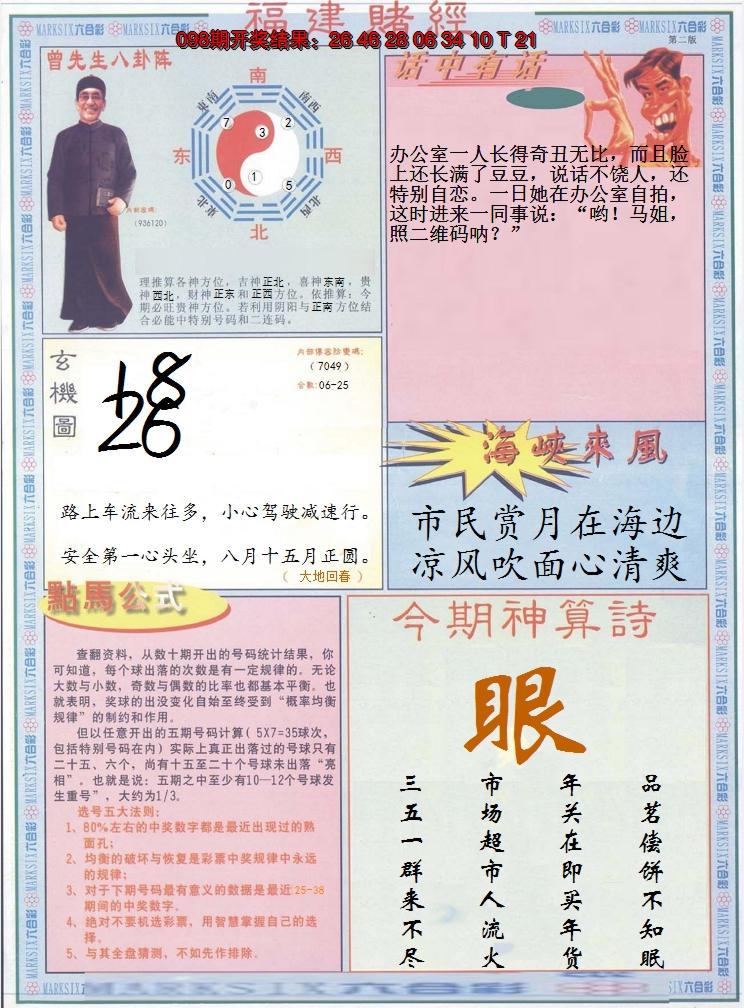 福建賭經
098期开奖结果：26 46 28 06 34 10 T 21
MARKSIX六合彩
第二版
曾先生八卦阵
南
东南
南西
7
2
3
东
西
0
1
5
東北
北西
北
内部密碼:
(936120)
理推算各神方位，吉神正北，喜神东南，贵
神西北，财神正东和正西方位。依推算：今
期必旺贵神方位。若利用阴阳与正南方位结
合必能中特别号码和二连码。
话中有话
办公室一人长得奇丑无比，而且脸
上还长满了豆豆，说话不饶人，还
特别自恋。一日她在办公室自拍，
这时进来一同事说：“哟！马姐，
照二维码呐？”
玄機圖
(7049)
合数:06-25
26
路上车流来往多，小心驾驶减速行。
安全第一心头坐，八月十五月正圆。
（ 大地回春 ）
海峽來風
市民赏月在海边
凉风吹面心清爽
點馬公式
查翻资料，从数十期开出的号码统计结果，你
可知道，每个球出落的次数是有一定规律的。无论
大数与小数，奇数与偶数的比率也都基本平衡。也
就表明，奖球的出没变化自始至终受到“概率均衡
规律”的制约和作用。
但以任意开出的五期号码计算( 5X7=35球次，
包括特别号码在内) 实际上真正出落过的号球只有
二十五、六个，尚有十五至二十个号球未出落“亮
相”。也就是说：五期之中至少有10—12个号球发
生重号”，大约为1/3。
选号五大法则：
1、80%左右的中奖数字都是最近出现过的熟
面孔；
2、均衡的破坏与恢复是彩票中奖规律中永远
的规律；
3、对于下期号码最有意义的数据是最近25-38
期间的中奖数字。
4、绝对不要机选彩票，用智慧掌握自己的选
择。
5、与其全盘猜测，不如先作排除。
今期神算詩
眼
品茗偿饼不知眠
年关在即买年货
市场超市人流火
三五一群来不尽